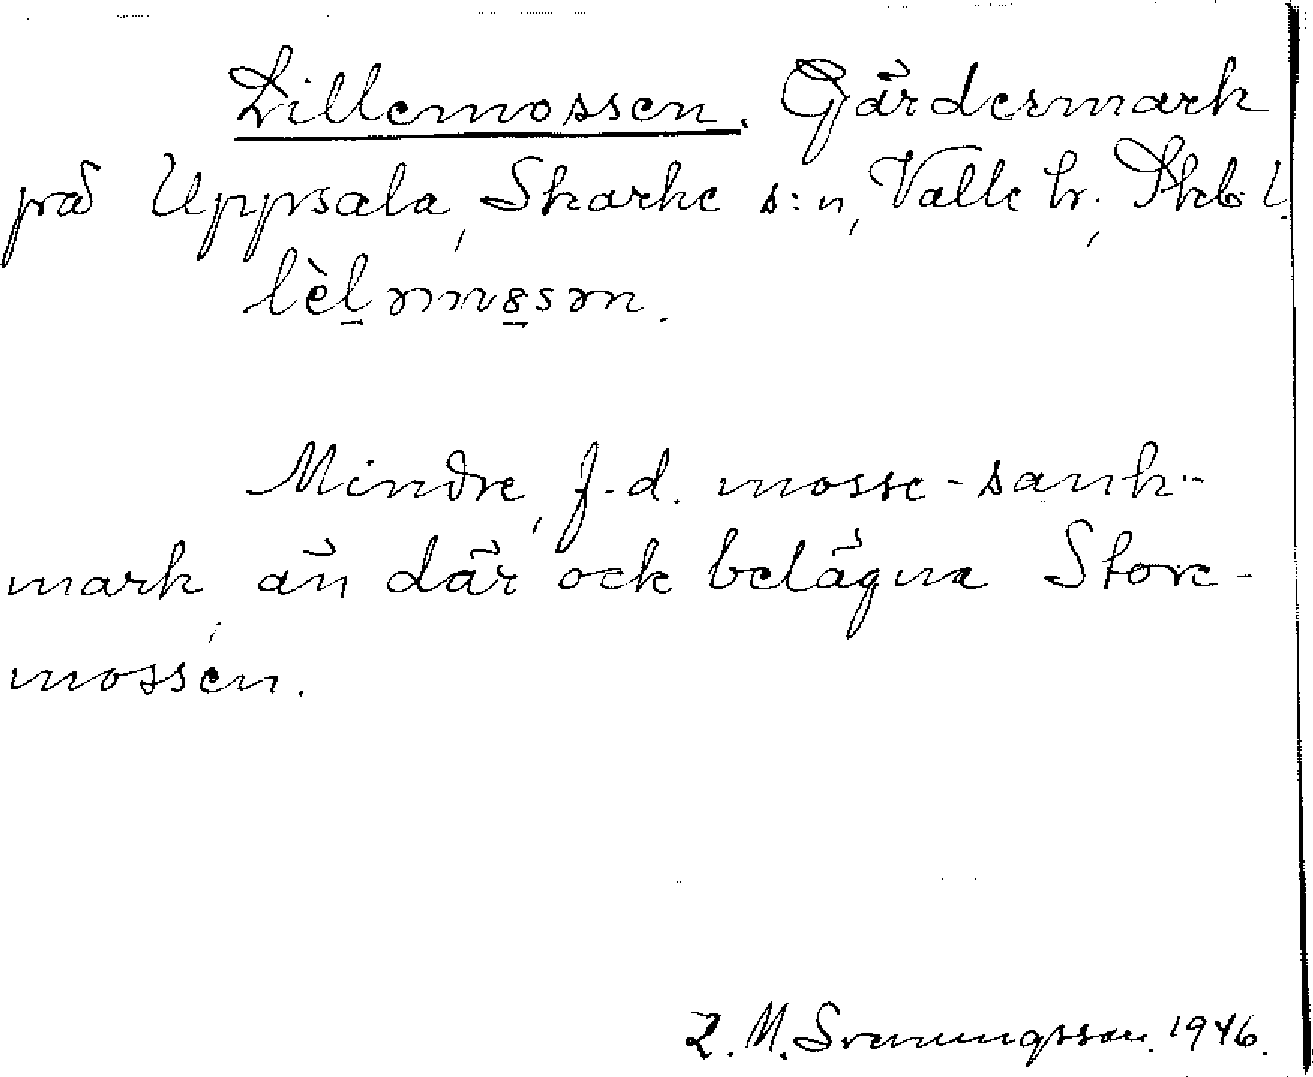 Lillemossen. Gärdesmark
på Uppsala, Skarke s:n, Valle hr, Skb. l.
lèl̠əmm8̠sən.
Mindre, f.d. mosse-sank-
mark, än där ock belägna Store-
mossen.
M. Svenungsson. 1946.